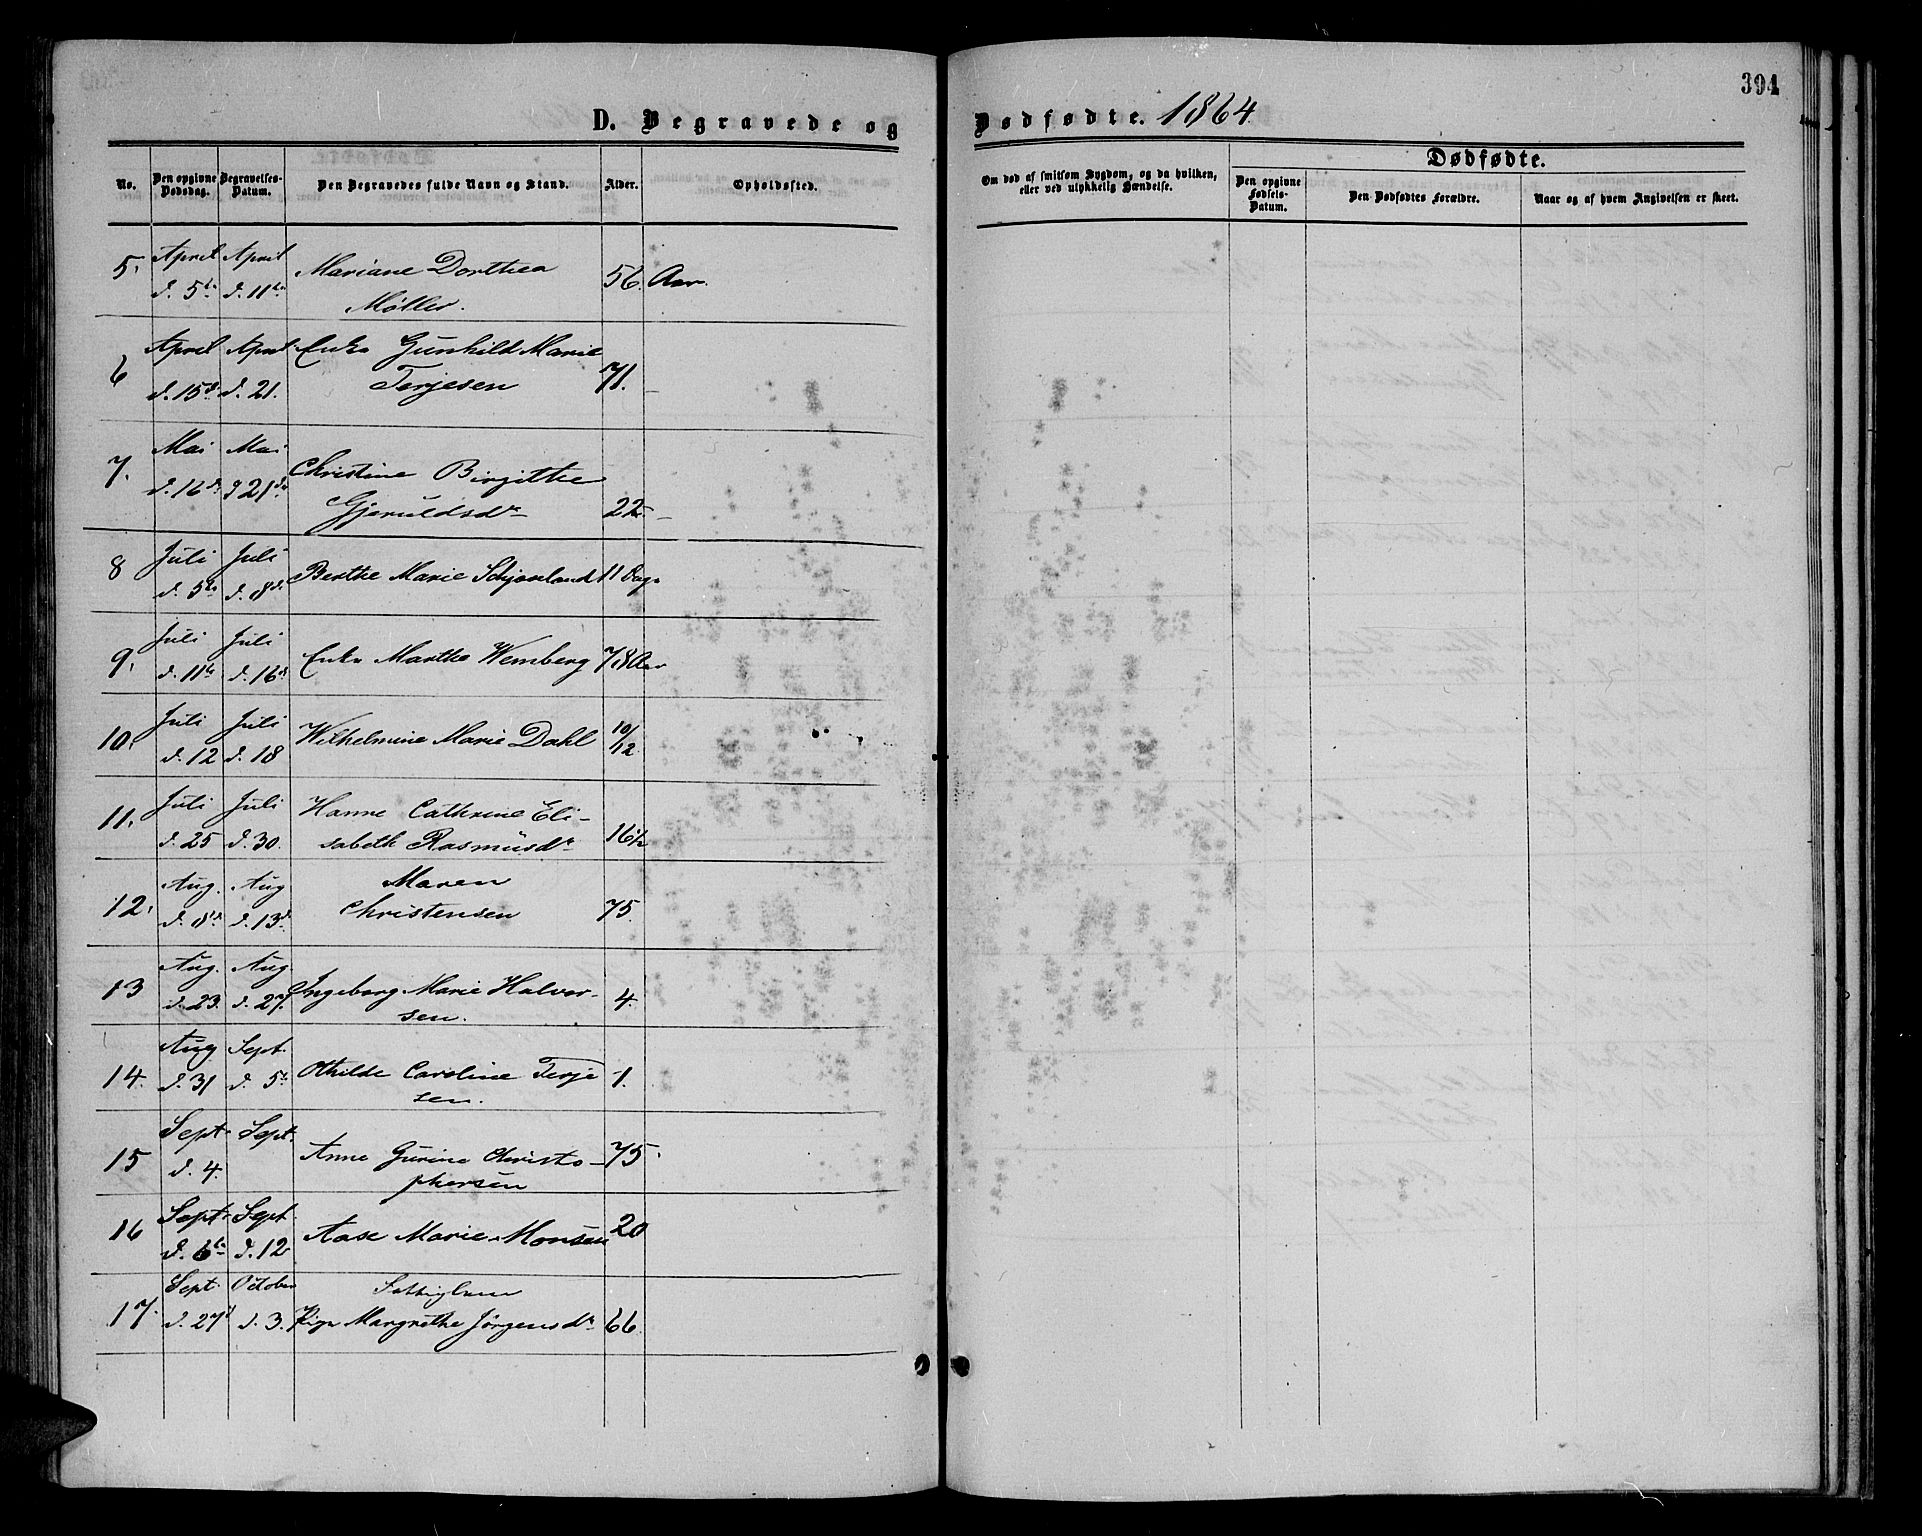 394
D. Begravede og Dødfødte. 1864
No.
Den opgivne Dødsdag.
Begravelses-Datum.
Den Begravedes fulde Navn og Stand.
Alder.
Opholdssted.
Om død af smitsom Sygdom, og da hvilken, eller ved ulykkelig Hændelse.
Dødfødte.
Den opgivne Fødsels-Datum.
Den Dødfødtes Forældre.
Naar og af hvem Angivelsen er skeet.
5. April April Mariane Dorthea 56 Aar.
d. 5te d. 11te Møller.
6 April April Enke Gunhild Marie
d. 15de d. 21. Terjesen 71. –
7. Mai Mai Christine Birgitte
d. 16de d 21de Gjeruldsdr 22 –
8 Juli Juli Berthe Marie 11 Dage
d. 5te d. 8de
9. Juli Juli Enke Marthe Wemberg 78 Aar
d. 11te d. 16de
10. Juli Juli Wilhelmine Marie Dahl 10/12
d. 12 d. 18
11. Juli Juli Hanne Cathrine Eli-
d. 25 d. 30. sabeth Rasmusdr 16½
12. Aug. Aug Maren
d. 8de d. 13de Christensen 75.
13 Aug. Aug Ingeborg Marie Halvor- 4.
d. 23. d. 27. sen.
14. Aug Sept. Othilde Caroline Terje 1.
d. 31 d. 5te sen.
15 Sept. Sept. Anne Gurine Christo- 75.
d. 4. phersen
16 Sept. Sept. Aase Marie Monsen 20
d. 6te d. 12
17. Sept. October
d. 27d d. 3. Pige Margrethe Jørgensdr 66